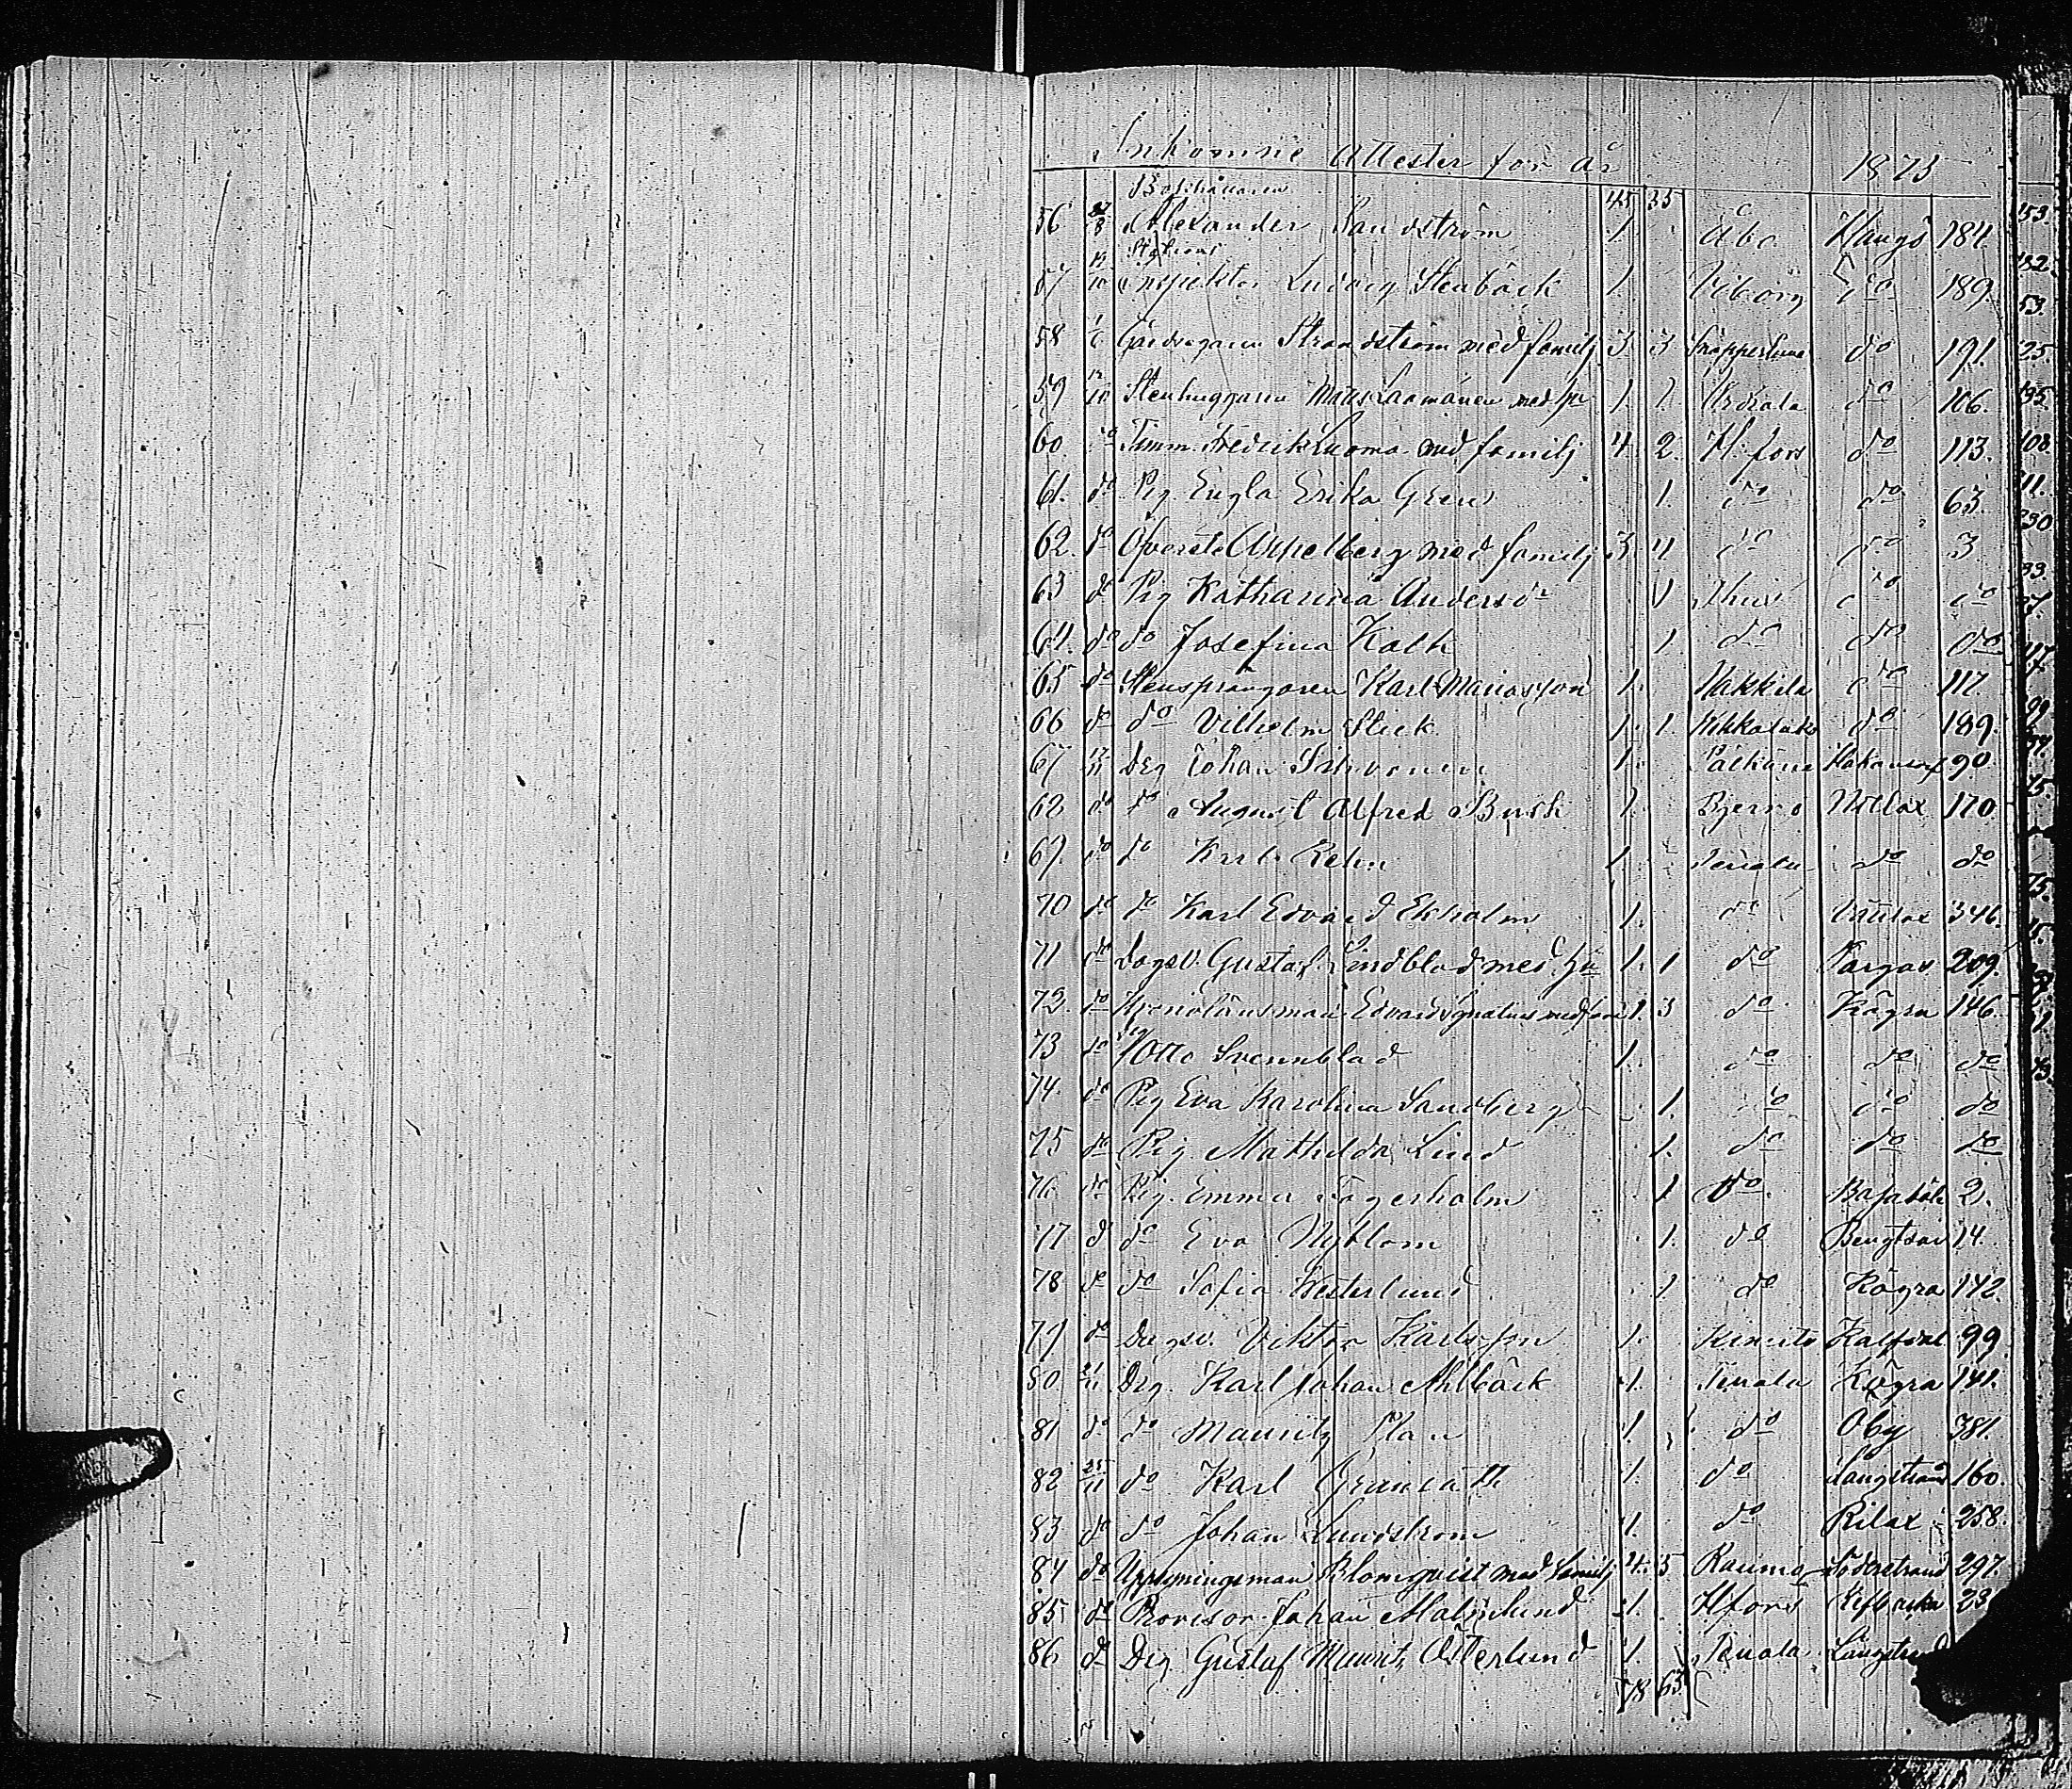 Inkomne Attester för år 1875
45 35
56 27/8 Bokhållaren Alexander Sandström 1. Åbo Hangö 184.
57 12/10 Stations Inspektor Ludvig Stenbäck 1. Viborg do 189.
58 Gårdsegaren Strandström med familj 3. 3 Snappertuna do 191.
59 12/10 Stenhuggaren Matts Laamanen med hu 1. 1. Urdiala do 106.
60. do Timm. Fredrik Luoma med familj 4. 2. H:fors do 113.
61. do Pig. Engla Erika Gren 1. do do 63.
62. do Öfverste Appelberg med familj 3. 4 do do 3
63 do Pig Katharina Andersdr 1 do do
64. do do Josefina Kalk 1 do do do
65 do Stensprängaren Karl Mariasson 1. Nakkila do 117.
66 do do Vilhelm Steck. 1. 1. do 189.
67 Drg Johan 1. Pälkäne 90
68 do do August Alfred Bush 1. Bjerno 170
69. do do Karl Rehn 1. Tenala do do
70 do do Karl Edvard Ekholm 1. do 346.
71 do Dagsv. Gustaf Lindblad med hu 1. 1 do Pargas 209.
72. do Kronolänsman Edvard Ignatius med fam 1. 3 do Kågra 146.
73 do Drg Otto Svennblad 1. do do do
74. do Pig Eva Karolina Sandberg 1. do do do
75 do Pig. Mathilda Lind 1. do do do
76 do Pig. Emma Fagerholm 1 do. 2.
77 do do Eva Nyblom 1. do Bengtsår 14.
78 do do Sofia Westerlund 1 do Kågra 142.
79 do Dagsv. Viktor Karlsson 1. Kimito 99
80. 21/11 Drg. Karl Johan Ahlbäck 1. Tenala Kågra 141.
81 do do Mauritz 1. do Öby 381.
82 25/11 do Karl 1. do Långstrand 160.
83. do do Johan Lundström 1. do Rilax 258.
84 do Uppsyningsman Blomqvist med familj 4. 5 Raumo Södrstrand 297.
85 do Provisor Johan Malmlund 1. Hfors
86 do Drg. Gustaf Maurits Österlund 1. Tenala
78 63